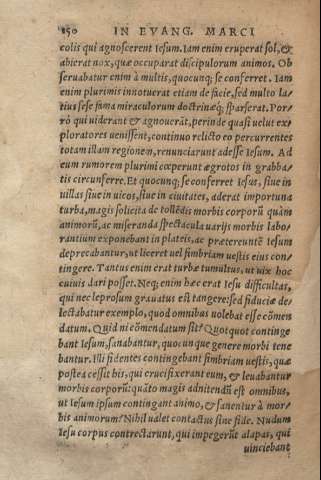 150 IN EVANG. MARCI
colis qui agnoscerent Iesum. Iam enim eruperat sol, &
abierat nox, quæ occuparat discipulorum animos. Ob
seruabatur enim à multis, quocunq; se conferret. Iam
enim plurimis innotuerat etiam de facie, sed multo la-
tius sese fama miraculorum doctrinæq; sparserat. Por-
rò qui uiderant & agnouerāt, perinde quasi uelut ex-
ploratores uenissent, continuo relicto eo percurrentes
totam illam regionem, renunciarunt adesse Iesum. Ad
eum rumorem plurimi cœperunt ægrotos in grabba-
tis circunferre. Et quocunq; se conferret Iesus, siue in
uillas siue in uicos, siue in ciuitates, aderat importuna
turba, magis solicita de tollēdis morbis corporū quàm
animorū, ac miseranda spectacula uarijs morbis labo-
rantium exponebant in plateis, ac prætereuntē Iesum
deprecabantur, ut liceret uel fimbriam uestis eius con-
tingere. Tantus enim erat turbæ tumultus, ut uix hoc
cuiuis dari posset. Neq; enim hæc erat Iesu difficultas,
qui nec leprosum grauatus est tangere: sed fiduciæ de-
lectabatur exemplo, quod omnibus uolebat esse cōmen
datum. Quid ni cōmendatum sit? Quotquot continge
bant Iesum, sanabantur, quocunque genere morbi tene
bantur. Illi fidentes contingebant fimbriam uestis, quæ
postea cessit his, qui crucifixerant eum, & leuabantur
morbis corporū: quāto magis adnitendū est omnibus,
ut Iesum ipsum contingant animo, & sanentur à mor-
bis animorum? Nihil ualet contactus sine fide. Nudum
Iesu corpus contrectarunt, qui impegerūt alapas, qui
uinciebant